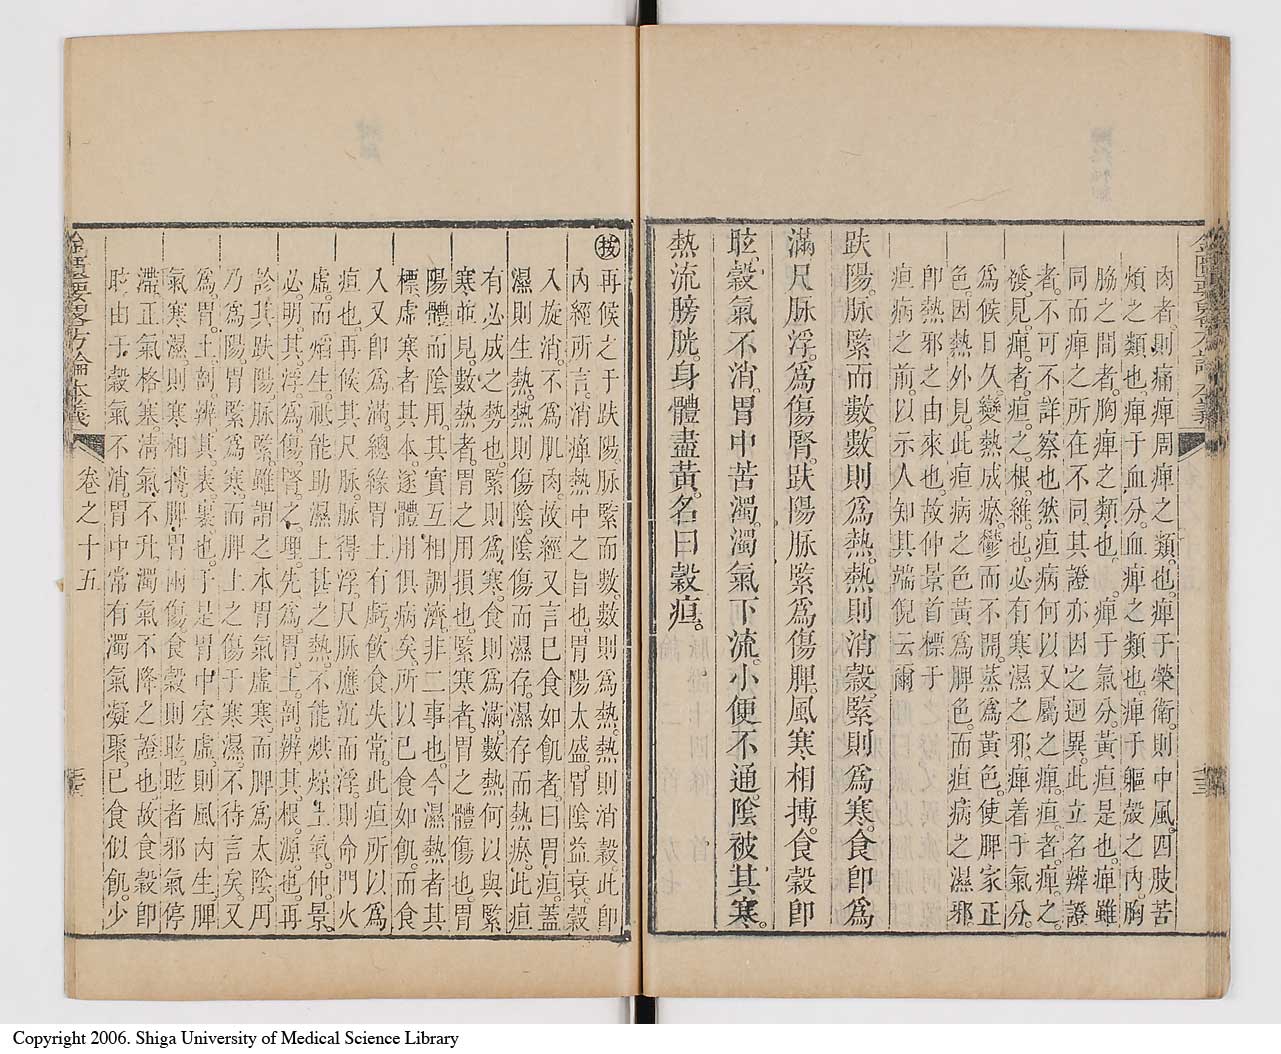 肉者則痛痺周痺之類也痺于榮衛則中風四肢苦
煩之類也痺于血分血痺之類也痺于軀殼之內胸
脇之間者胸痺之類也痺于氣分黃疸是也痺雖
同而痺之所在不同其證亦因之迥異此立名辨證
者不可不詳察也然疸病何以又屬之痺疸者痺之
發見痺者疸之根維也必有寒濕之邪痺着于氣分
為候日久變熱成瘀鬱而不開蒸為黃色使脾家正
色因熱外見此疸病之色黃為脾色而疸病之濕邪
即熱邪之由來也故仲景首標于
疸病之前以示人知其端倪云爾
趺陽脉緊而數數則為熱熱則消穀緊則為寒食即為
滿尺脉浮為傷腎趺陽脉緊為傷脾風寒相搏食穀即
眩穀氣不消胃中苦濁濁氣下流小便不通陰被其寒
熱流膀胱身體盡黃名曰穀疸
按再候之于趺陽脉緊而數數則為熱熱則消穀此即
內經所言消癉熱中之旨也胃陽太盛胃陰益衰穀
入旋消不為肌肉故經又言已食如飢者曰胃疸蓋
濕則生熱熱則傷陰陰傷而濕存濕存而熱瘀此疸
有必成之勢也緊則為寒食則為滿數熱何以與緊
寒並見數熱者胃之用損也緊寒者胃之體傷也胃
陽體而陰用其實互相調濟非二事也今濕熱者其
標虛寒者其本遂體用俱病矣所以已食如飢而食
入又即為滿總緣胃土有虧飲食失常此疸所以為
疸也再候其尺脉脉得浮尺脉應沉而浮則命門火
虛而熖生祗能助濕土甚之熱不能烘燥土氣仲景
必明其浮為傷腎之理先為胃土剖辨其根源也再
診其趺陽脉緊雖謂之本胃氣虛寒而脾為太陰用
乃為陽胃緊為寒而脾土之傷于寒濕不待言矣又
為胃土剖辨其表裏也于是胃中空虛則風內生脾
氣寒濕則寒相搏脾胃兩傷食穀則眩眩者邪氣停
滯正氣格塞清氣不升濁氣不降之證也故食穀即
眩由于穀氣不消胃中常有濁氣凝聚已食似飢少
金匱要畧方論本義
卷之十五